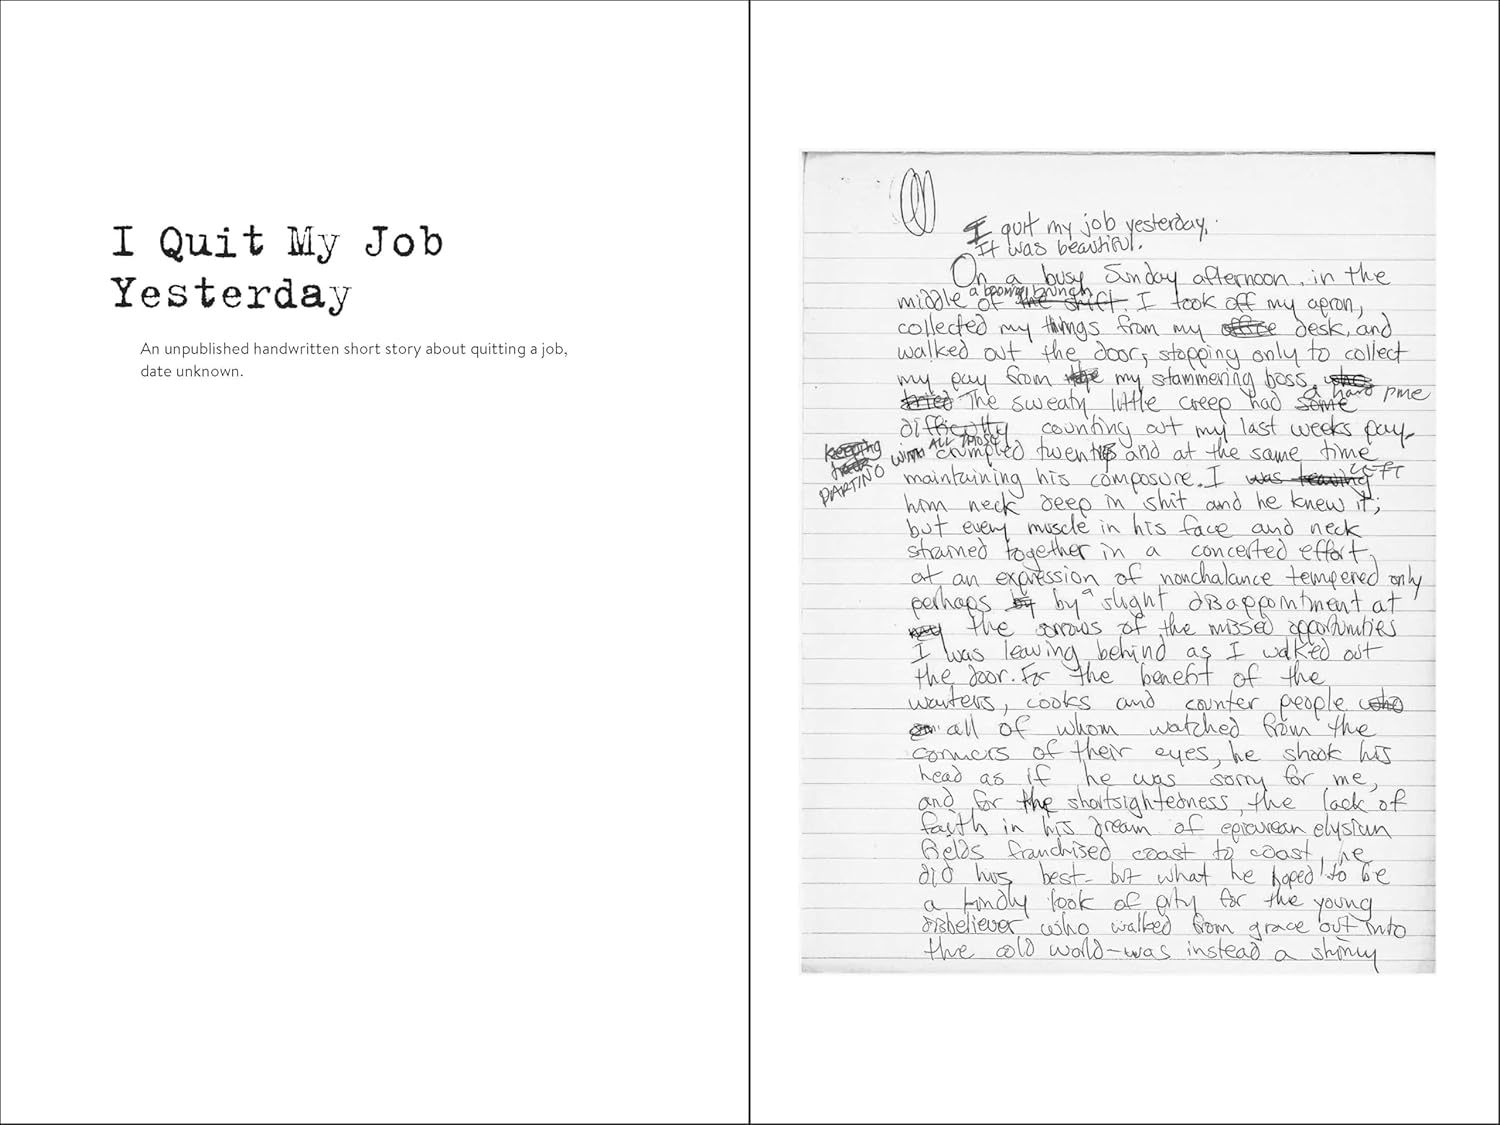 I Quit My Job
Yesterday
An unpublished handwritten short story about quitting a job,
date unknown.
I quit my job yesterday.
It was beautiful.
On a busy Sunday afternoon, in the
a booming brunch
middle of the shift. I took off my apron,
collected my things from my office desk, and
walked out the door, stopping only to collect
my pay from my stammering boss, who
a hard time
tried The sweaty little creep had some
difficulty counting out my last weeks pay
keeping
PARTING
with ALL THOSE
crumpled twenties and at the same time
maintaining his composure. I was leaving LEFT
him neck deep in shit and he knew it;
but every muscle in his face and neck
strained together in a concerted effort,
at an expression of nonchalance tempered only
perhaps by by a slight disappointment at
my the sorrows of the missed opportunities
I was leaving behind as I walked out
the door. For the benefit of the
waiters, cooks and counter people who
all of whom watched from the
corners of their eyes, he shook his
head as if he was sorry for me,
and for the shortsightedness, the lack of
faith in his dream of epicurean elysian
fields franchised coast to coast, he
did his best - but what he hoped to be
a kindly look of pity for the young
disbeliever who walked from grace out into
the cold world - was instead a shiny